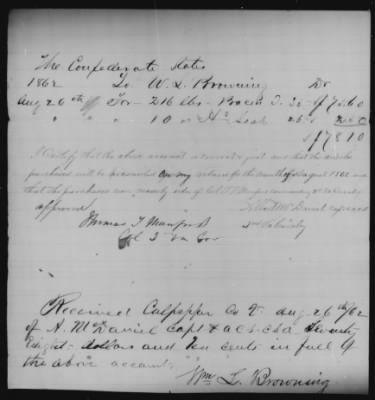 The Confederate States
1862 To W. L. Browning Dr
Aug 26th For 216 lbs Bacon 35 $75.60
" " " 10 " Hd Lard 25c 2.50
$78.10
I Certify that the above account is correct & just and that the articles
purchased will be accounted for on my return for the month of August 1862 and
that the purchases were made by order of Col T. T. Munford commanding 2d Va Cavalry
approved
Thomas T Munford
Col 2 Va Cav
Received Culpepper Co Va aug 26th/62
of A. McDaniel Capt & a c s CSA Seventy
Eight dollars and ten cents in full of
the above account
Wm L. Browning